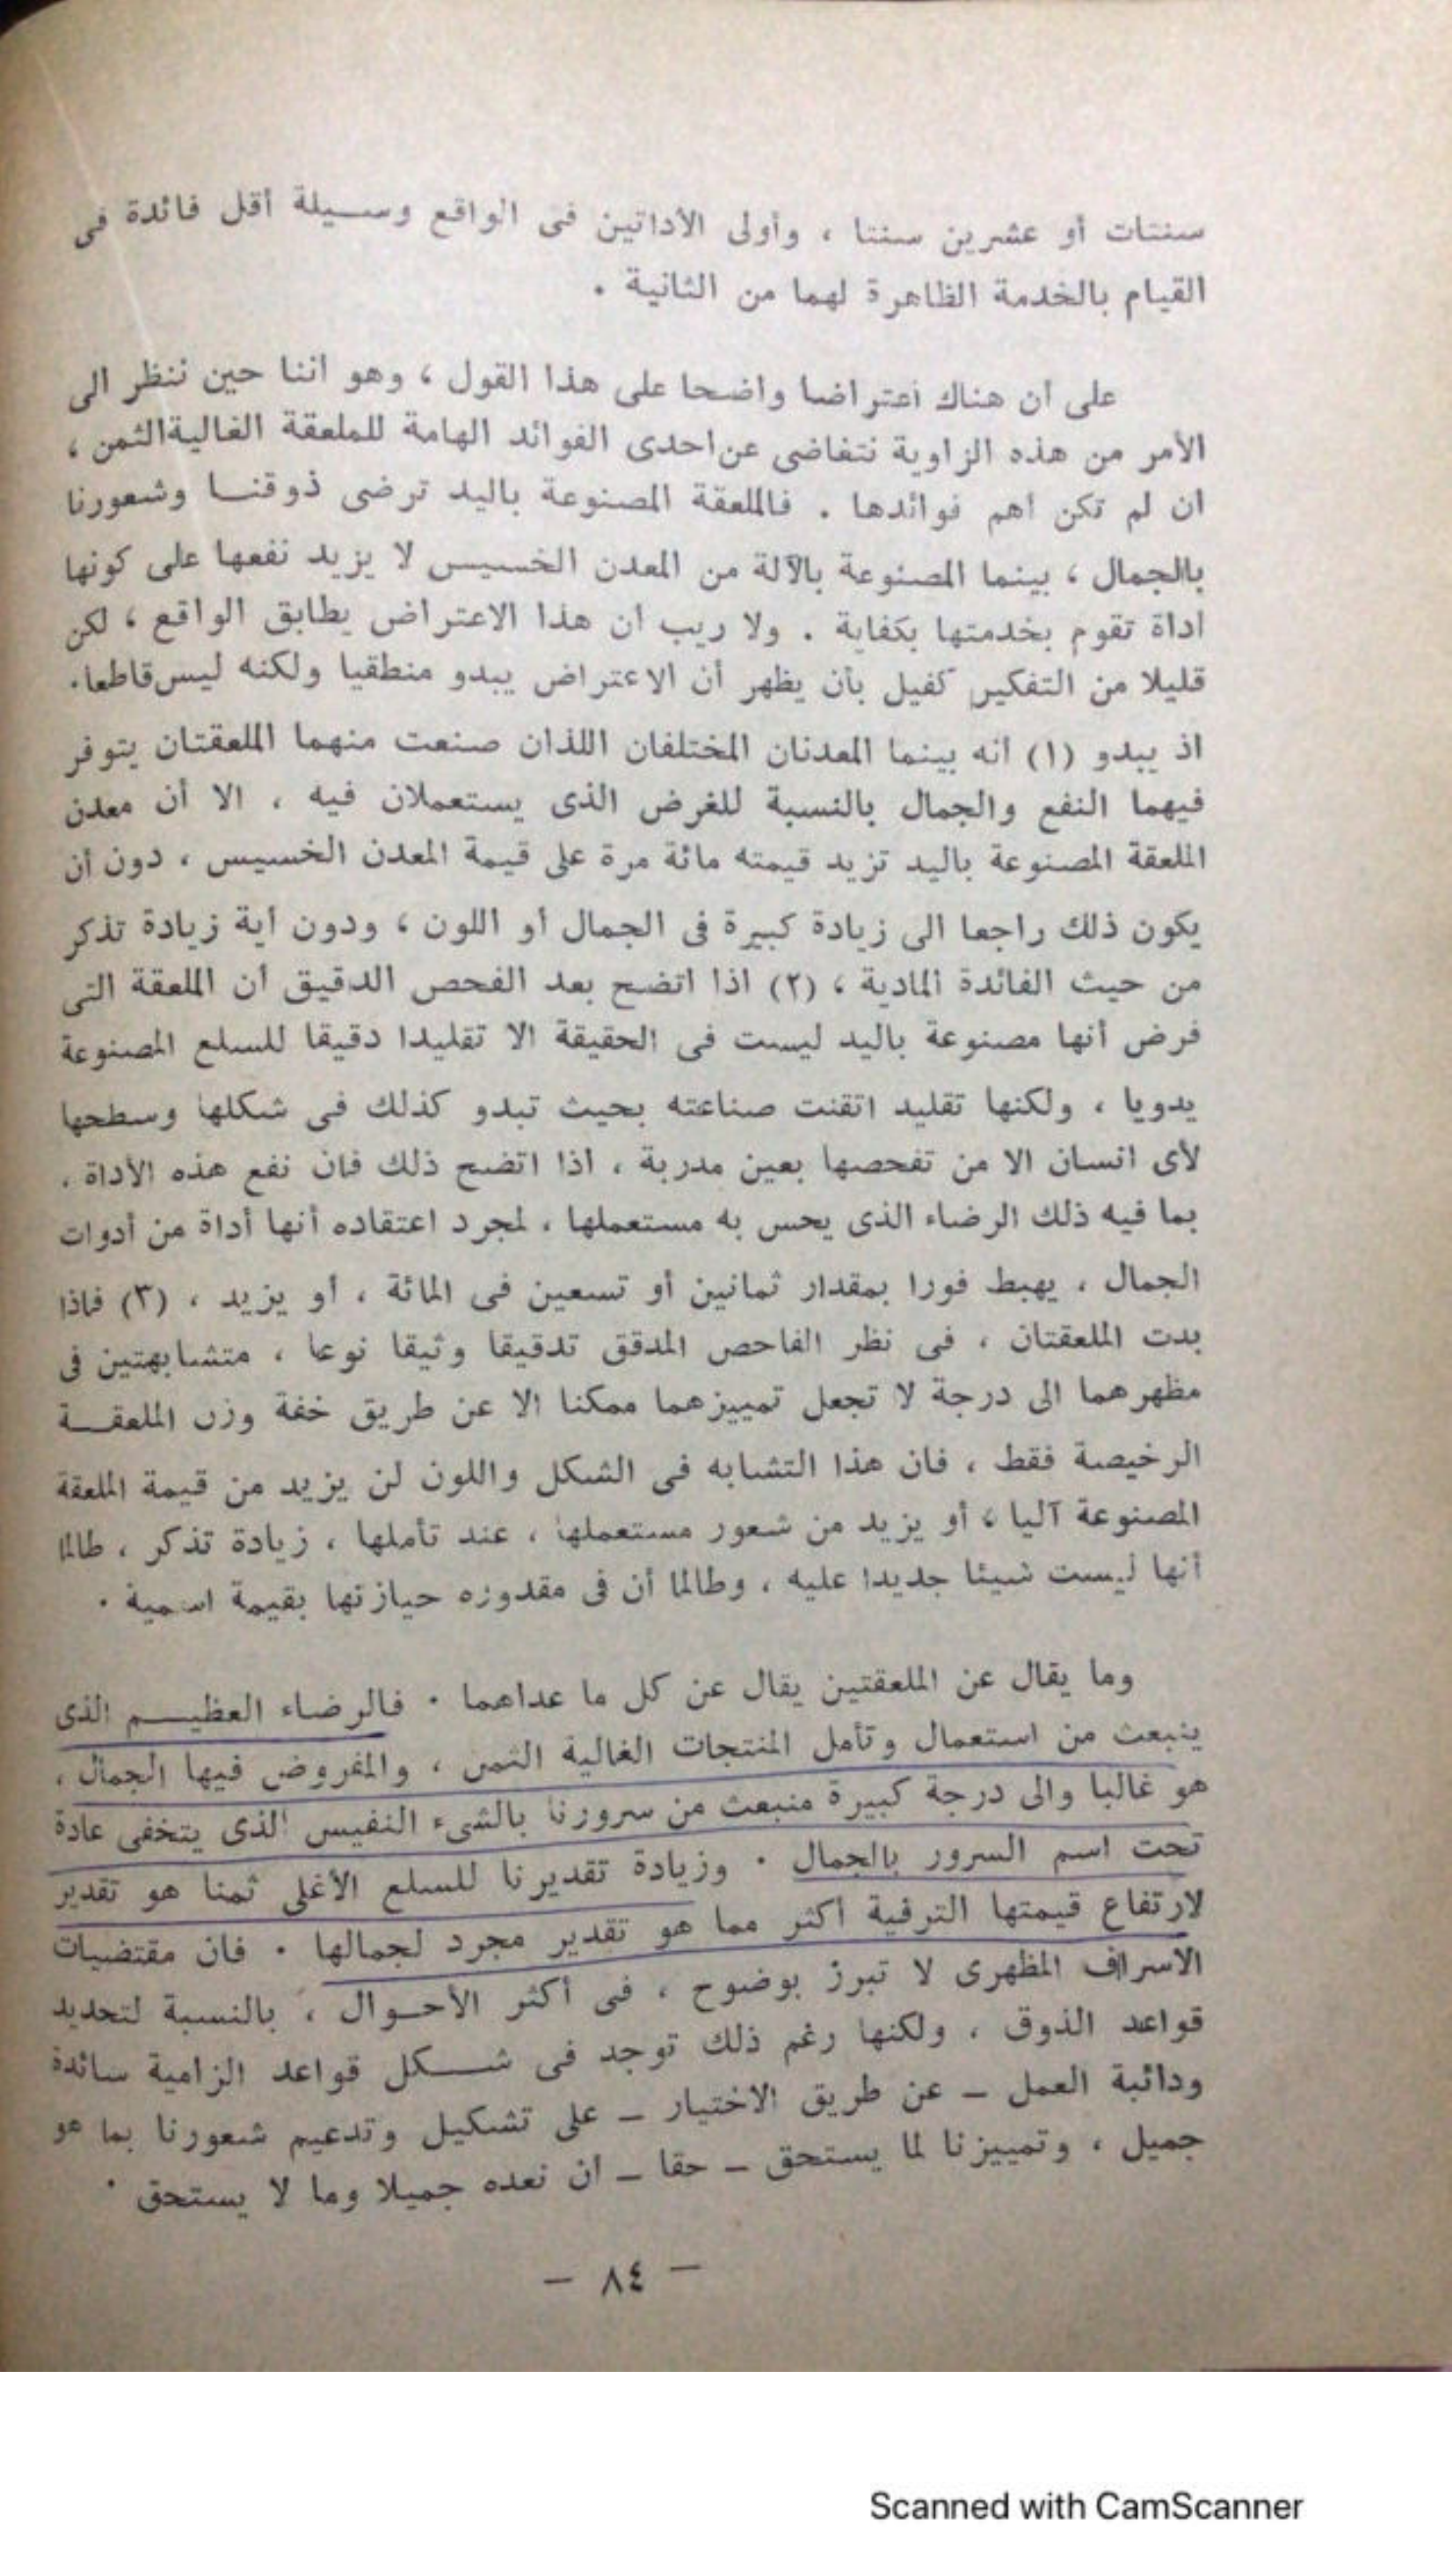 سنتات أو عشرين سنتا ، وأولى الأداتين فى الواقع وسـيلة أقل فائدة فى
القيام بالخدمة الظاهرة لهما من الثانية .
على ان هناك اعتراضا واضحا على هذا القول ، وهو اننا حين ننظر الى
الأمر من هذه الزاوية نتغاضى عن احدى الفوائد الهامة للملعقة الغالية الثمن ،
ان لم تكن اهم فوائدها . فالملعقة المصنوعة باليد ترضى ذوقنـا وشعورنا
بالجمال ، بينما المصنوعة بالآلة من المعدن الخسيس لا يزيد نفعها على كونها
اداة تقوم بخدمتها بكفاية . ولا ريب ان هذا الاعتراض يطابق الواقع ، لكن
قليلا من التفكير كفيل بأن يظهر أن الاعتراض يبدو منطقيا ولكنه ليس قاطعا.
اذ يبدو (١) انه بينما المعدنان المختلفان اللذان صنعت منهما الملعقتان يتوفر
فيهما النفع والجمال بالنسبة للغرض الذى يستعملان فيه ، الا أن معدن
الملعقة المصنوعة باليد تزيد قيمته مائة مرة على قيمة المعدن الخسيس ، دون أن
يكون ذلك راجعا الى زيادة كبيرة فى الجمال أو اللون ، ودون أية زيادة تذكر
من حيث الفائدة المادية ، (٢) اذا اتضح بعد الفحص الدقيق أن الملعقة التى
فرض أنها مصنوعة باليد ليست فى الحقيقة الا تقليدا دقيقا للسلع المصنوعة
يدويا ، ولكنها تقليد اتقنت صناعته بحيث تبدو كذلك فى شكلها وسطحها
لأى انسان الا من تفحصها بعين مدربة ، اذا اتضح ذلك فان نفع هذه الأداة ،
بما فيه ذلك الرضاء الذى يحس به مستعملها ، لمجرد اعتقاده أنها أداة من أدوات
الجمال ، يهبط فورا بمقدار ثمانين أو تسعين فى المائة ، أو يزيد ، (٣) فاذا
بدت الملعقتان ، فى نظر الفاحص المدقق تدقيقا وثيقا نوعا ، متشابهتين فى
مظهرهما الى درجة لا تجعل تمييزهما ممكنا الا عن طريق خفة وزن الملعقــة
الرخيصة فقط ، فان هذا التشابه فى الشكل واللون لن يزيد من قيمة الملعقة
المصنوعة آليا ، أو يزيد من شعور مستعملها ، عند تأملها ، زيادة تذكر ، طالما
أنها ليست شيئا جديدا عليه ، وطالما أن فى مقدوره حيازتها بقيمة اسمية .
وما يقال عن الملعقتين يقال عن كل ما عداهما . فالرضاء العظيــم الذى
ينبعث من استعمال وتأمل المنتجات الغالية الثمن ، والمفروض فيها الجمال ،
هو غالبا والى درجة كبيرة منبعث من سرورنا بالشىء النفيس الذى يتخفى عادة
تحت اسم السرور بالجمال . وزيادة تقديرنا للسلع الأغلى ثمنا هو تقدير
لارتفاع قيمتها الترفية اكثر مما هو تقدير مجرد لجمالها . فان مقتضيات
الاسراف المظهرى لا تبرز بوضوح ، فى أكثر الأحـوال ، بالنسبة لتحديد
قواعد الذوق ، ولكنها رغم ذلك توجد فى شــكل قواعد الزامية سائدة
ودائبة العمل ــ عن طريق الاختيار ــ على تشكيل وتدعيم شعورنا بما هو
جميل ، وتمييزنا لما يستحق ــ حقا ــ ان نعده جميلا وما لا يستحق .
— ٨٤ —
Scanned with CamScanner